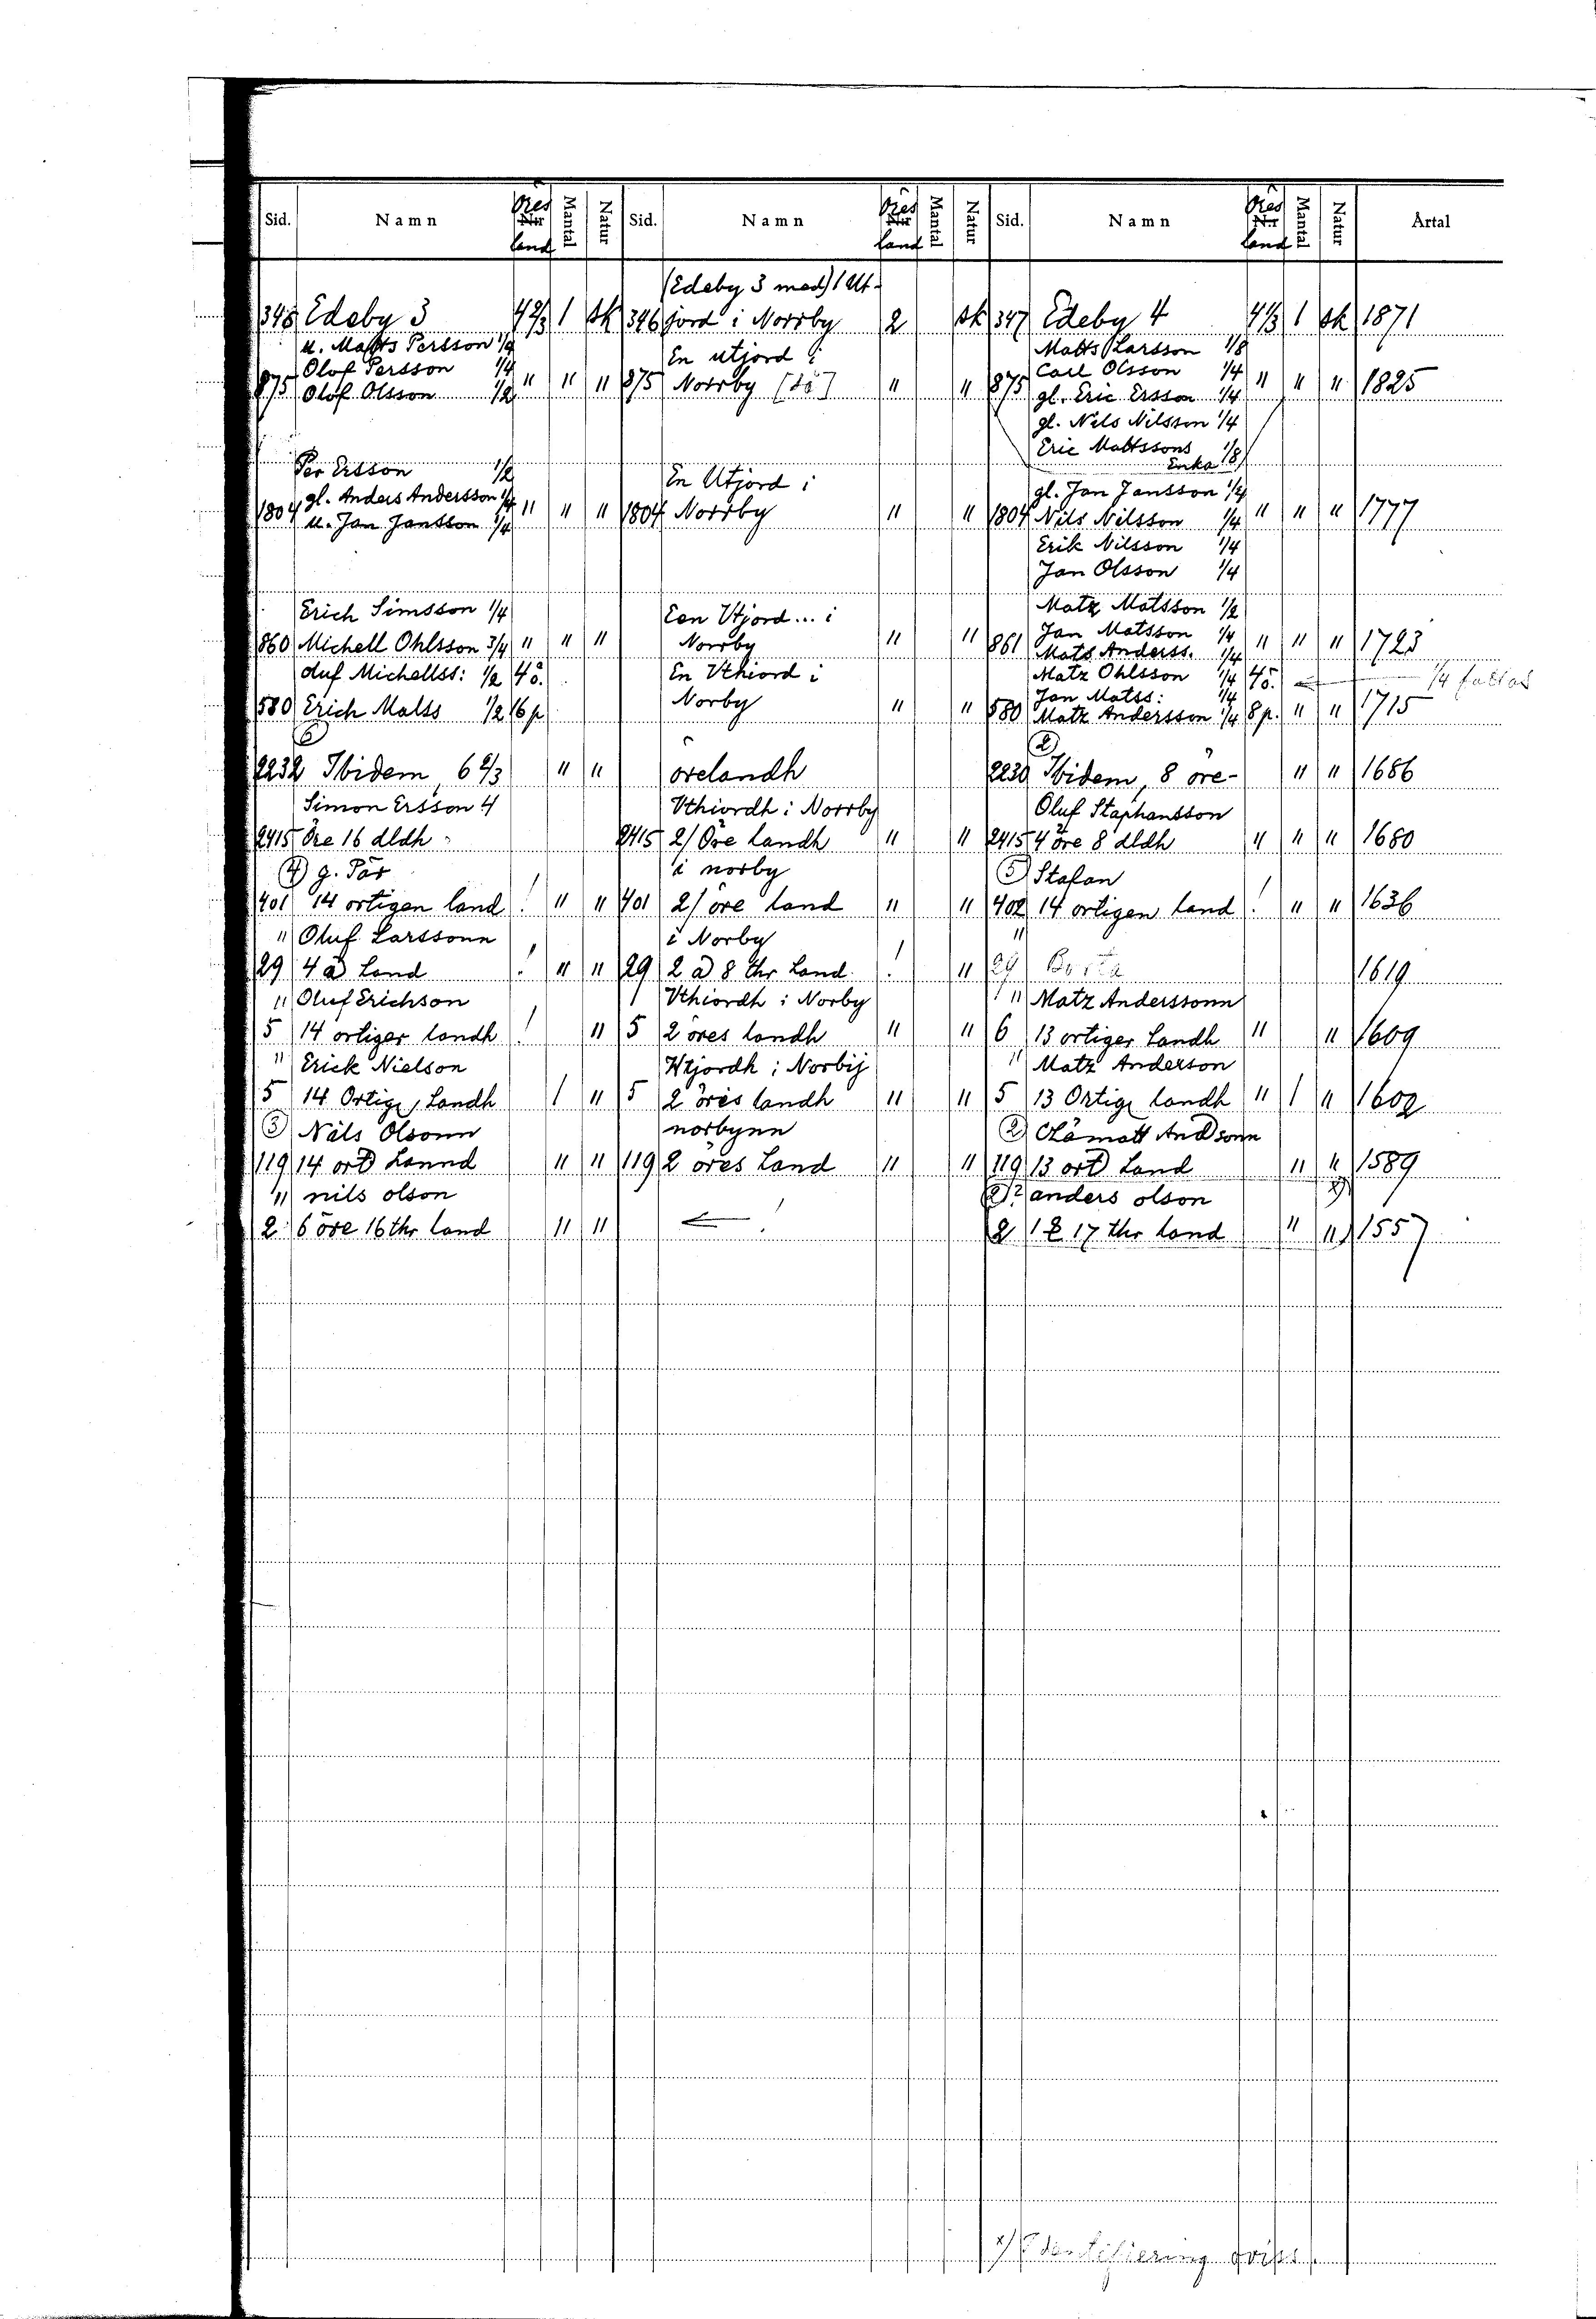 Sid. Namn Öres Nr land Mantal Natur Sid. Namn Öres Nr land Mantal Natur Sid. Namn Öres Nr land Mantal Natur Årtal
(Edeby 3 med) 1 Ut-
345 Edeby 3 4 2/3 1 sk 346 jord i Norrby 2 sk 347 Edeby 4 4 1/3 1 sk 1871
u. Matts Persson 1/4 En utjord i Matts Larsson 1/8
Olof Persson 1/4 Carl Olsson 1/4
875 Olof Olsson 1/2 " " " 875 Norrby " " 875 gl. Eric Ersson 1/4 " " " 1825
gl. Nils Nilsson 1/4
Eric Mattssons
Enka 1/8
Per Ersson 1/2 En Utjord i gl. Jan Jansson 1/4
gl. Anders Andersson 1/4
1804 u. Jan Jansson 1/4 " " " 1804 Norrby " " 1804 Nils Nilsson 1/4 " " " 1777
Erik Nilsson 1/4
Jan Olsson 1/4
Erich Simsson 1/4 Een Utjord... i Matz Matsson 1/2
Jan Matsson 1/4
860 Michell Ohlsson 3/4 " " " Norrby " " 861 Mats Anderss. 1/4 " " " 1723
Oluf Michellss: 1/2 4ö. En Vthiord i Matz Ohlsson 1/4 4ö. 1/4 fattas
Jan Matss: 1/4
580 Erich Malss 1/2 16 p Norby " " 580 Matz Andersson 1/4 8 p. " " 1715
(2)
2232 Ibidem, 6 2/3 " " örelandh 2230 Ibidem, 8 öre- " " 1686
Simon Ersson 4 Vthiordh i Norrby Oluf Staphansson
2415 Öre 16 dldh 2415 2/ Öre Landh " " 2415 4 öre 8 dldh " " " 1680
(4) g. Pär i norby (5) Stafan
401 14 ortigen land ! " " 401 2/ öre land " " 402 14 ortigen land ! " " 1636
" Oluf Larssonn i Norby "
29 4 a Land ! " " 29 2 a 8 thr Land ! " 29 Borta 1619
" Oluf Erichson Vthiordh i Norby " Matz Anderssonn
5 14 ortiger landh ! " 5 2 öres landh " " 6 13 ortiger Landh " " 1609
" Erick Nielson Wtjordh i Norbij " Matz Anderson
5 14 Ortige Landh 1 " 5 2 öris landh " " 5 13 Ortige landh " 1 " 1602
(3) Näls Olsonn norbynn (2) Andsonn
119 14 ort Lannd " " 119 2 öres Land " " 119 13 ort Land " " 1589
" nils olson (2)? anders olson x)
2 6 öre 16 thr land " " ! 2 1 17 thr land " " 1557
x) Identifiering oviss